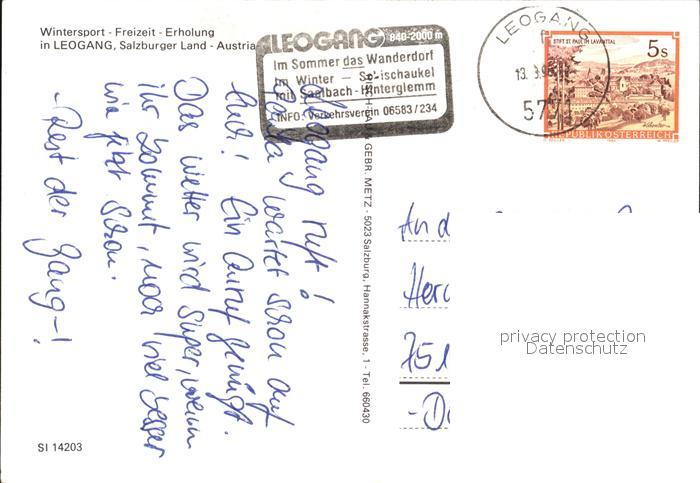 Wintersport - Freizeit - Erholung
in LEOGANG, Salzburger Land - Austria
LEOGANG 840-2000 m
Im Sommer das Wanderdorf
im Winter - Schischaukel
mit Saalbach-Hinterglemm
INFO: Verkehrsverein 06583/234
LEOGANG
13. 3.
5771
STIFT ST. PAUL IM LAVANTTAL
5s
REPUBLIK ÖSTERREICH
Leogang ruft!
wartet schon auf
Euch! Ein Anruf genügt.
Das Wetter wird super, wenn
ihr kommt, noch viel besser
wie jetzt schon.
- Rest der Gang -!
GEBR. METZ - 5023 Salzburg, Hannakstrasse, 1 - Tel. 660430
An d
Her
751
privacy protection
Datenschutz
SI 14203